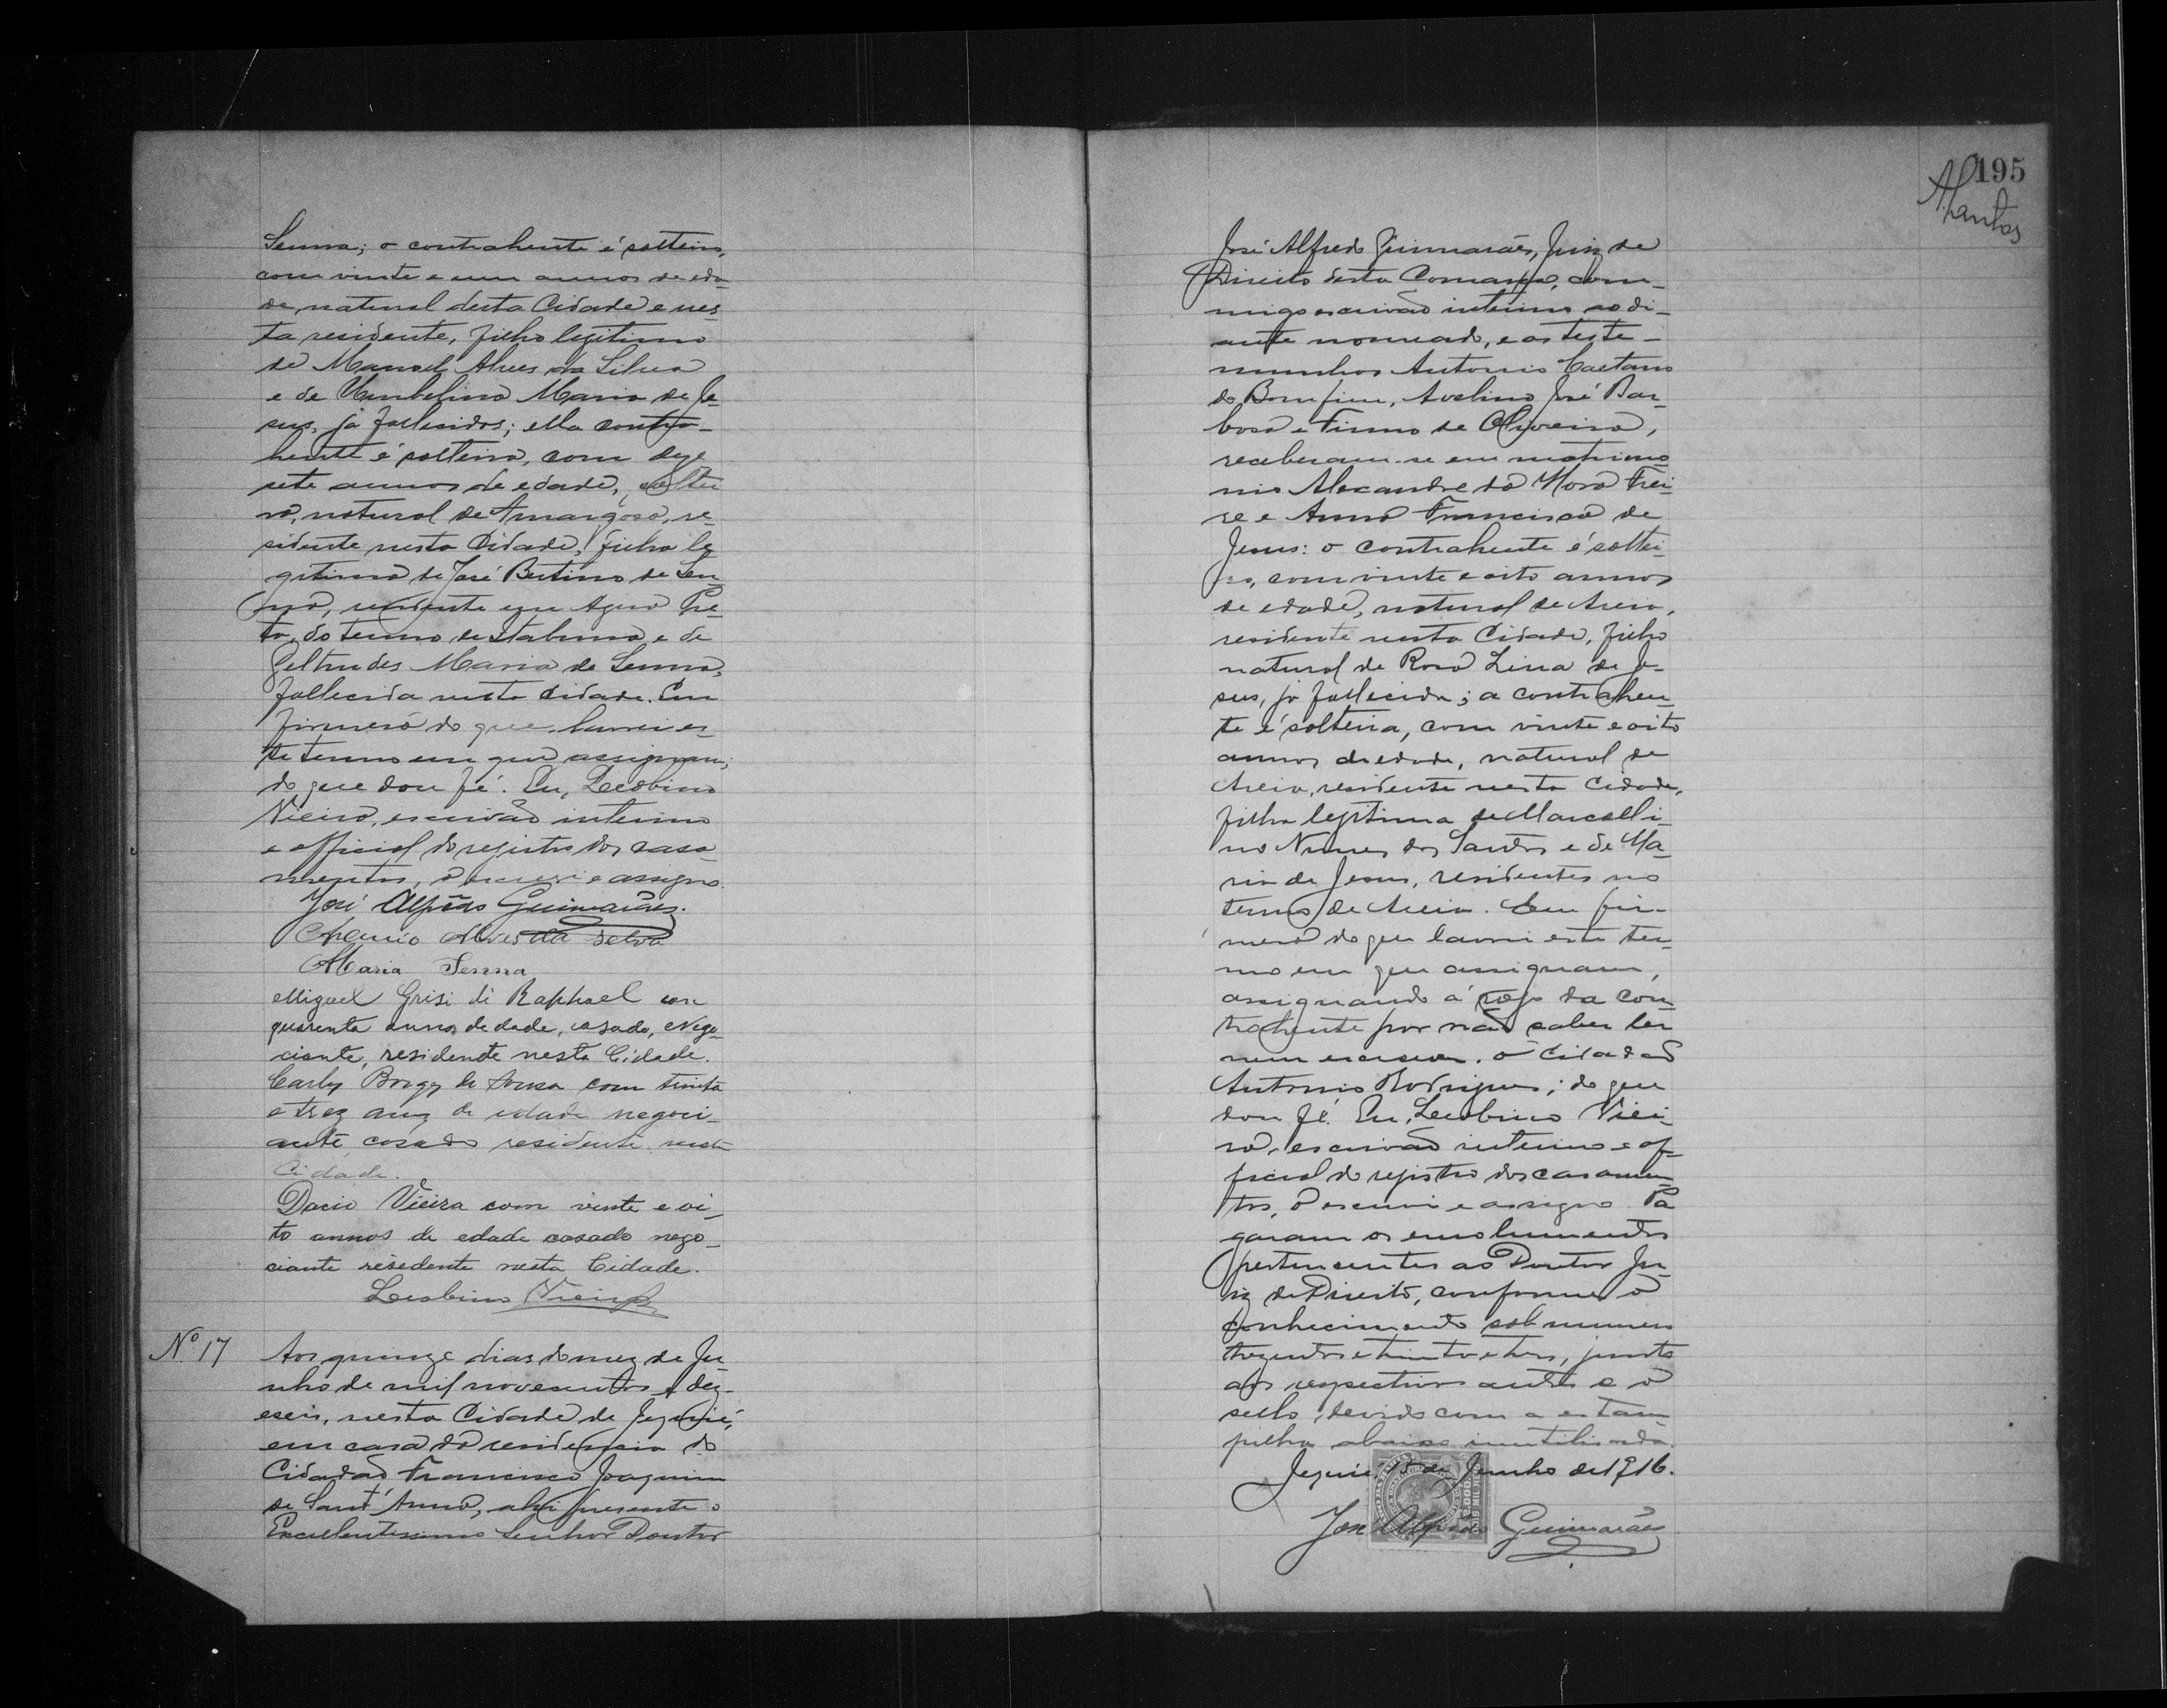 Senna; o contrahente é solteiro,
com vinte e um annos de eda-
de, natural desta Cidade e nes-
ta residente, filho legitimo
de Manoel Alves da Silva
e de Umbelina Maria de Je-
sus, já fallecidos; ella contra-
hente é solteira, com deze-
sete annos de edade, soltei-
ra, natural de Amargosa, re-
sidente nesta Cidade, filha le-
gitima de José Bertino de Sen-
na, residente em Agua Pre-
ta, do termo de Itabuna e de
Geltrudes Maria de Senna,
fallecida nesta Cidade. Em
firmesa do que, lavrei es-
te termo em que assignam;
do que dou fé. Eu, Leobino
Vieira, escrivão interino
e official do registro dos casa-
mentos, o escrevi e assigno.
José Alfredo Guimarães.
Alves da Selva
Maria Senna
Miguel Grisi di Raphael con
quarenta annos de dade, casado, Nego-
ciante, residente nesta Cidade.
Carlos Borges de Sousa com trinta
e trez anns de edade negoci-
ante casado residente nesta
Cidade.
Dacio Vieira com vinte e oi-
to annos de edade casado nego-
ciante residente nesta Cidade.
Leobino Vieira
Nº 17
Aos quinze dias do mez de Ju-
nho de mil novecentos e dez-
eseis, nesta Cidade de Jequié,
em casa da residencia do
Cidadão Francisco Joaquim
de Sant'Anna, ahi presente o
Excellentissimo Senhor Doutor
195
José Alfredo Guimarães, Juiz de
Direito desta Comarca, com-
migo escrivão interino ao di-
ante nomeado, e as teste-
munhas Antonio Caetano
do Bomfim, Avelino José Bar-
bosa e Firmo de Oliveira,
receberam-se em matrimo-
nio Alexandre da Mora Frei-
re e Anna Francisca de
Jesus: o contrahente é soltei-
ro, com vinte e oito annos
de edade, natural de Areia,
residente nesta Cidade, filho
natural de Rosa Lina de Je-
sus, já fallecida; a contrahen-
te é solteira, com vinte e oito
annos de edade, natural de
Areia, residente nesta Cidade,
filha legitima de Marcelli-
no Nunes dos Santos e de Ma-
ria de Jesus, residentes no
termo de Areia. Em fir-
mesa do que lavrei este ter-
mo em que assignam,
assignando á rogo da con-
trahente por não saber ler
nem escrever, o Cidadão
Antonio Rodrigues; do que
dou fé. Eu, Leobino Viei-
ra, escrivão interino e of-
ficial do registro dos casamen-
tos, o escrevi e assigno. Pa-
garam os emolumentos
pertencentes ao Doutor Ju-
iz de Direito, conforme o
conhecimento sob numero
trezentos e trinta e tres, junto
aos respectivos autos e o
sello devido com a estam-
pilha abaixo inutilisada.
Jequié, 15 de Junho de 1916.
José Alfredo Guimarães